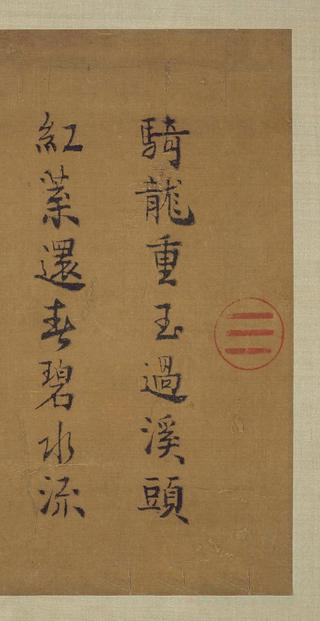 騎龍重玉過溪頭
紅葉還春碧水流
☰